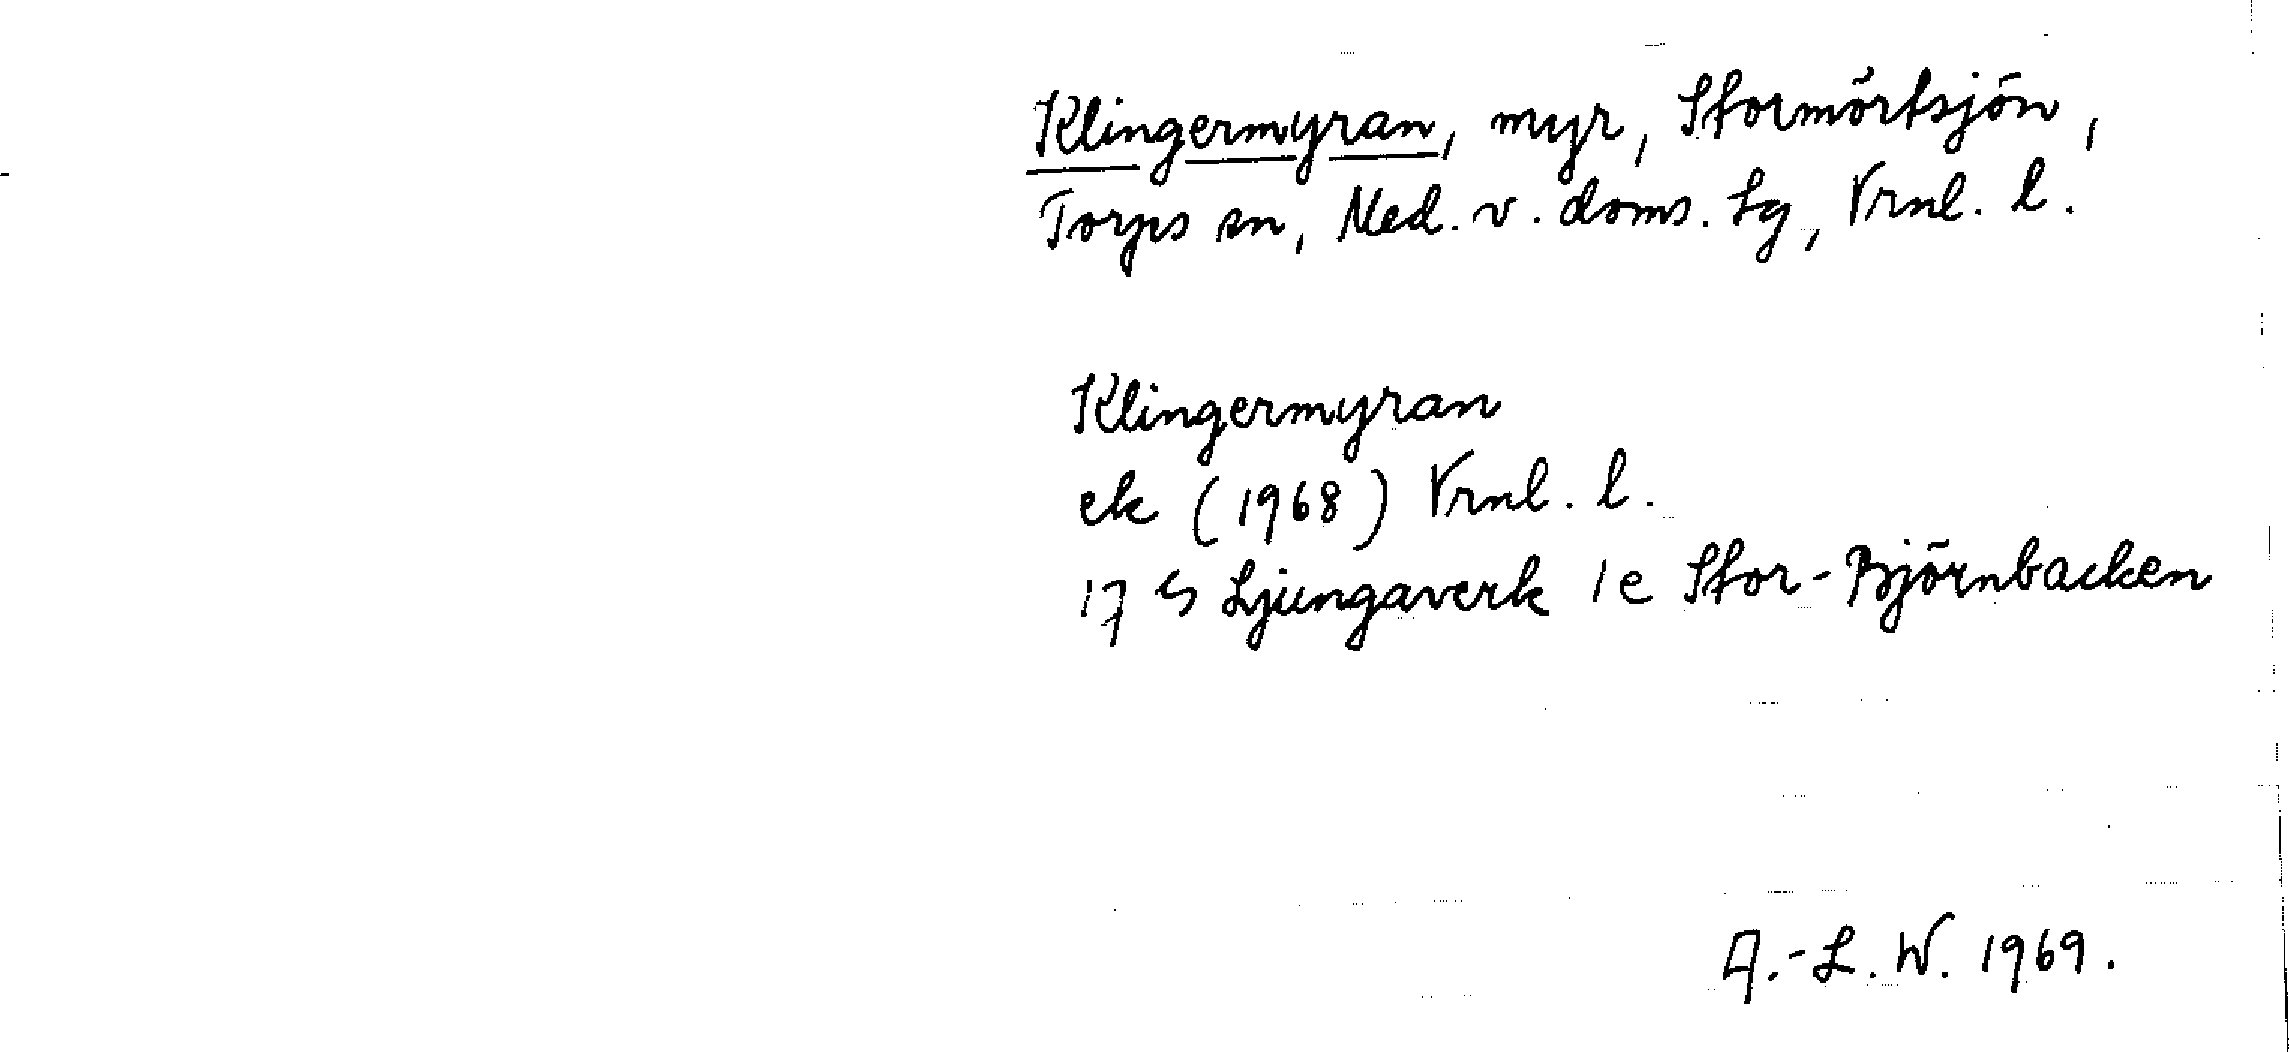 Klingermyran, myr, Stormörtsjön,
Torps sn, Med. v. doms. lg, Vrnl. l.
Klingermyran
ek (1968) Vrnl. l.
17 S Ljungaverk 1e Stor-Björnbacken
A.-L. W. 1969.